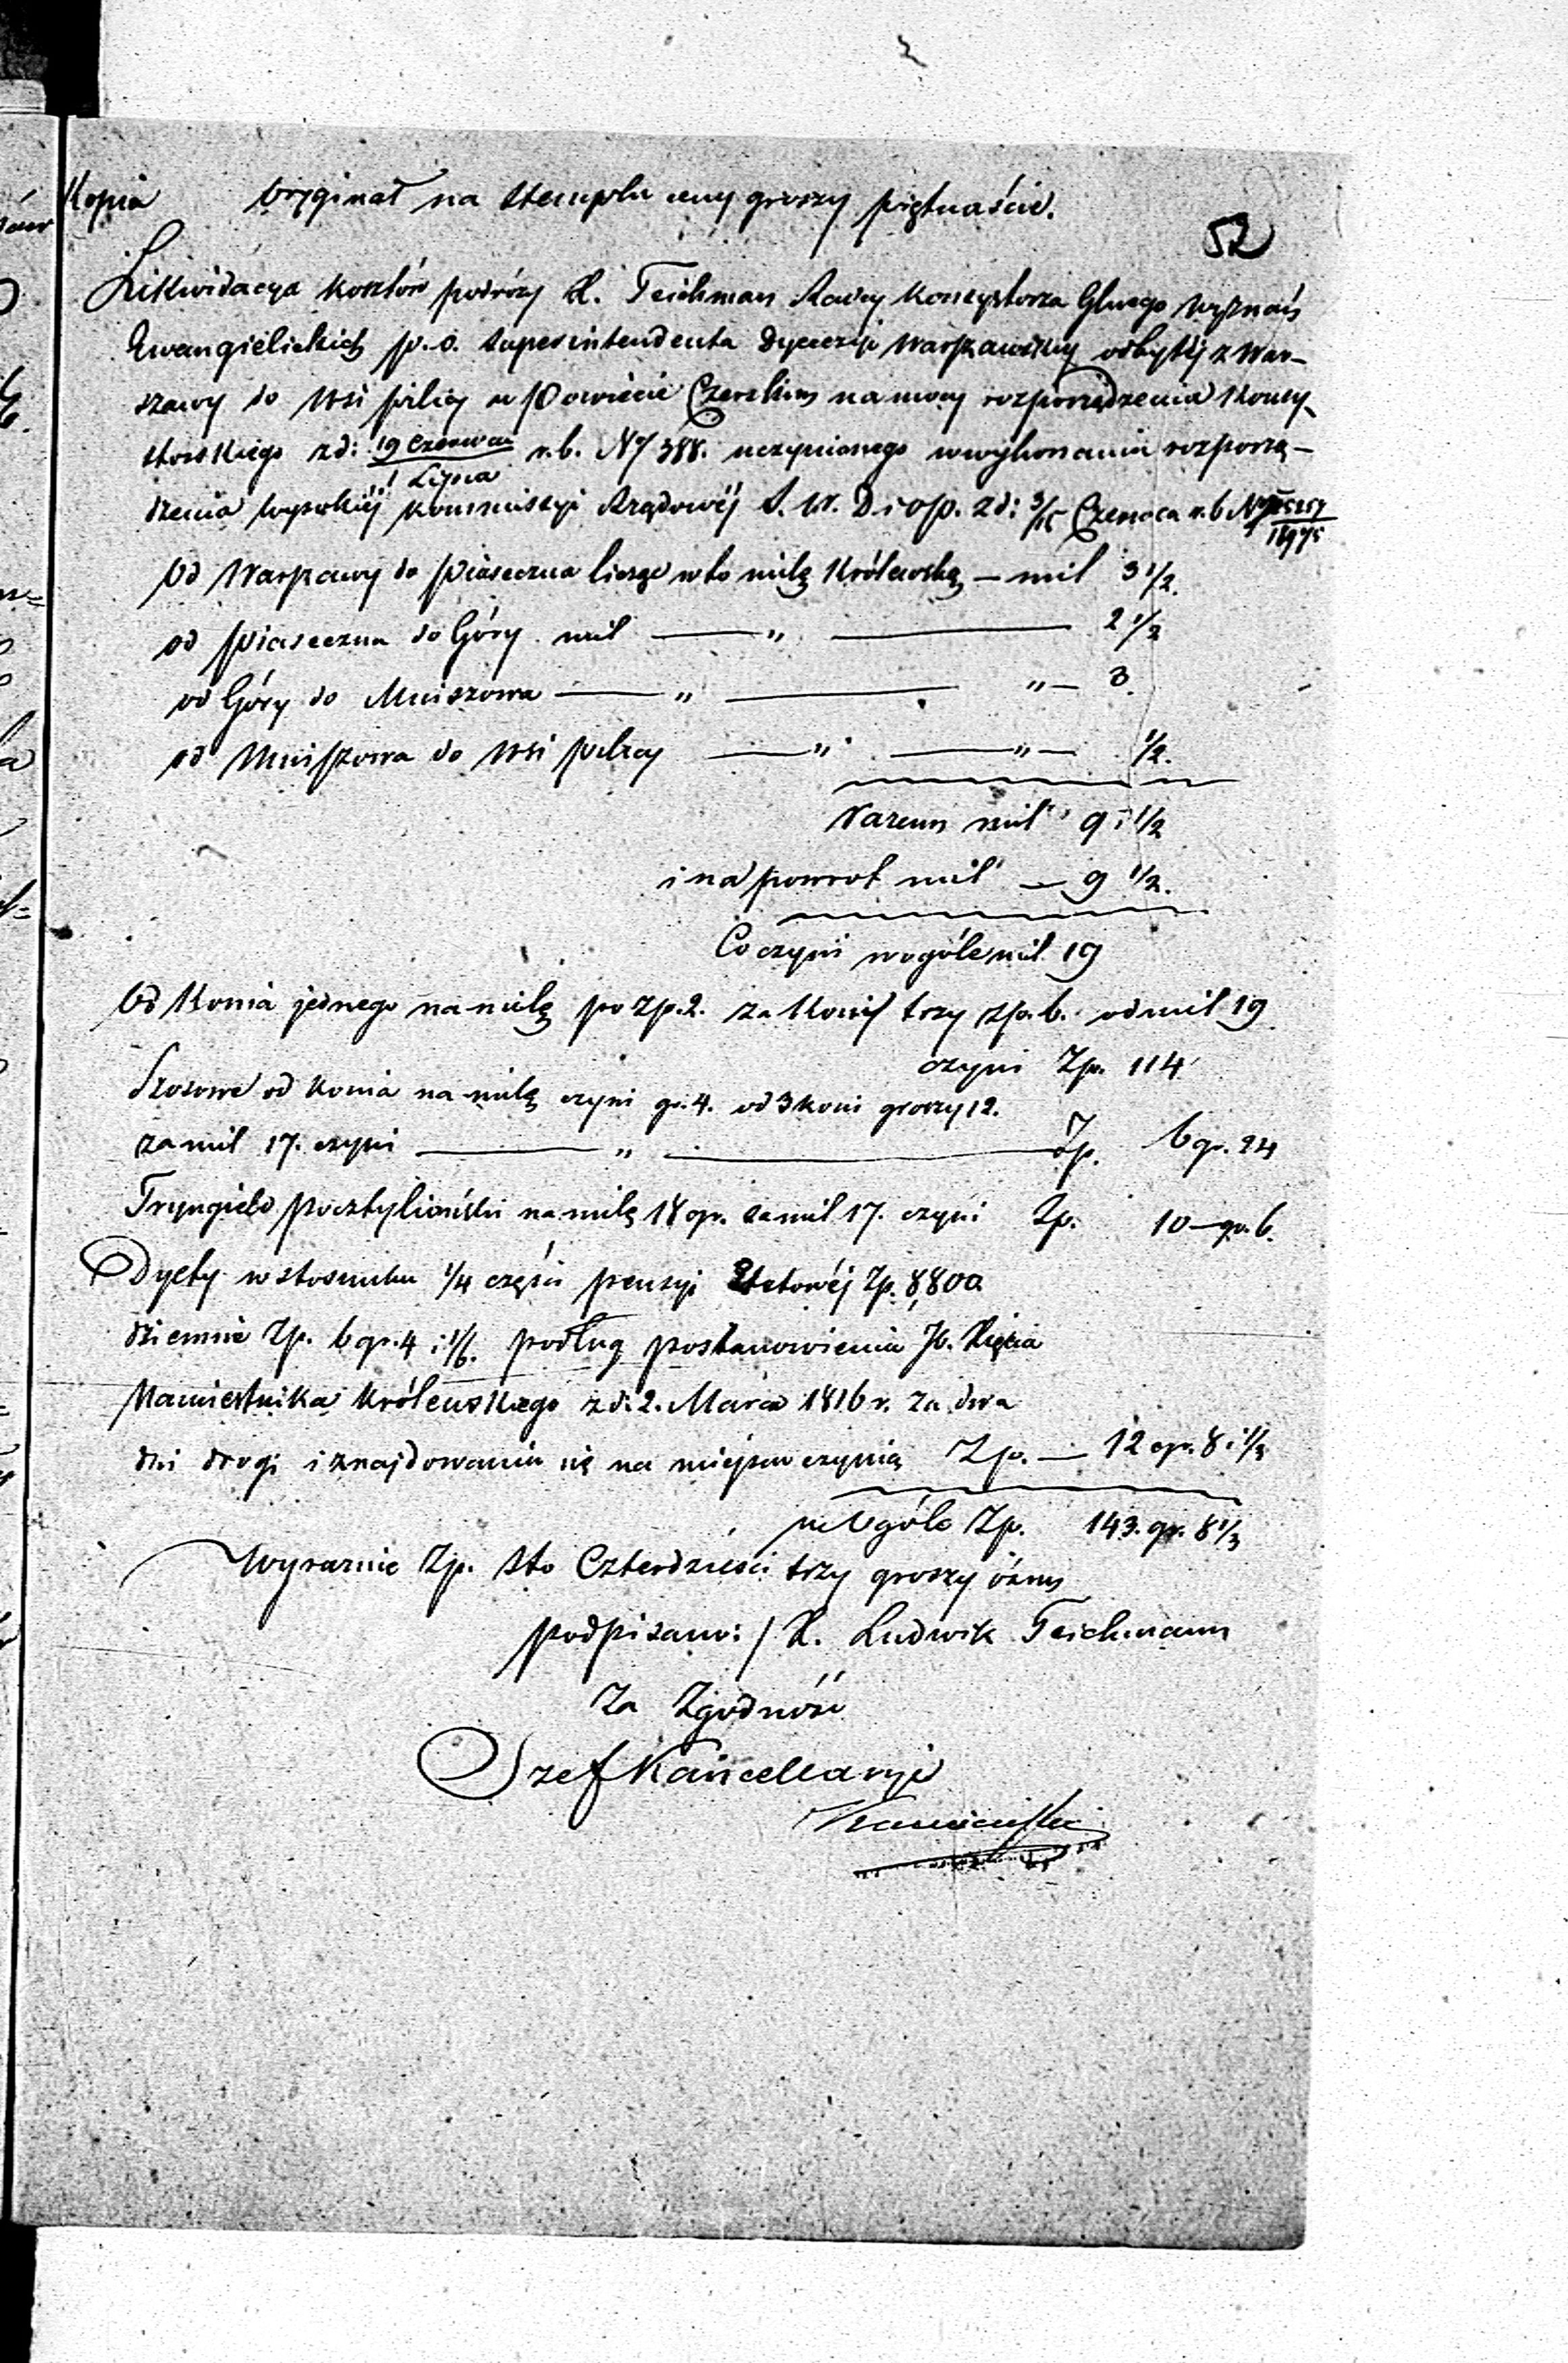 Kopia Oryginał na stemplu ceny groszy piętnaście.
52
Likwidacya kosztów podróży X. Teichman Radcy Konsystorza Glnego wyznań
Ewangielickich p.o. Superintendenta Dyecezji Warszawskiej odbytéj z War-
szawy do Wsi pilicy w Powiecie Czerskim na mocy rozporządzenia Konsy-
storskiego z d: 19 Czerwca / 1 Lipca r.b. No 388. uczynionego w wykonaniu rozporzą-
dzenia wysokiéj Kommissyi Rządowéj S. W. D. i O p. z d: 3/15 Czerwca r.b No
Od Warszawy do Piaseczna licząc w to milę Królewską — mil 3 1/2.
od Piaseczna do Góry mil — " — 2 1/2
od Góry do Mniszowa — " — " — 3.
od Mniszowa do Wsi pilicy — " — " — 1/2.
Razem mil 9 i 1/2
i na powrot mil — 9 1/2.
Co czyni w ogóle mil 19
Od Konia jednego na milę po Zp. 2. za Koni trzy zp. 6. od mil 19
czyni Zp. 114
Szosowe od konia na milę czyni gr. 4. od 3 koni groszy 12.
za mil 17. czyni — " — Zp. 6 gr. 24
Tryngield pocztylioński na milę 18 gr. za mil 17. czyni Zp. 10 — gr. 6.
Dyety w stosunku 1/4 części pensyi Etetowéj Zp. 8,800
dziennie Zp. 6 gr. 4 i 1/6. podług postanowienia JO. Xięcia
Namiestnika Królewskiego z d. 2. Marca 1816 r. za dwa
dni drogi i znajdowania się na miejscu czynią Zp. — 12 gr. 8 i 1/3
w Ogóle Zp. 143. gr. 8 1/3
Wyraznie Zp. Sto Czterdzieści trzy groszy ósm
podpisano: / X. Ludwik Teichmann
Za Zgodność
Szef Kancellaryi